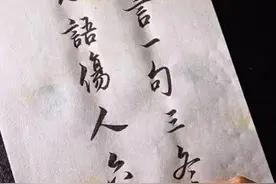 言一句三冬
語傷人六